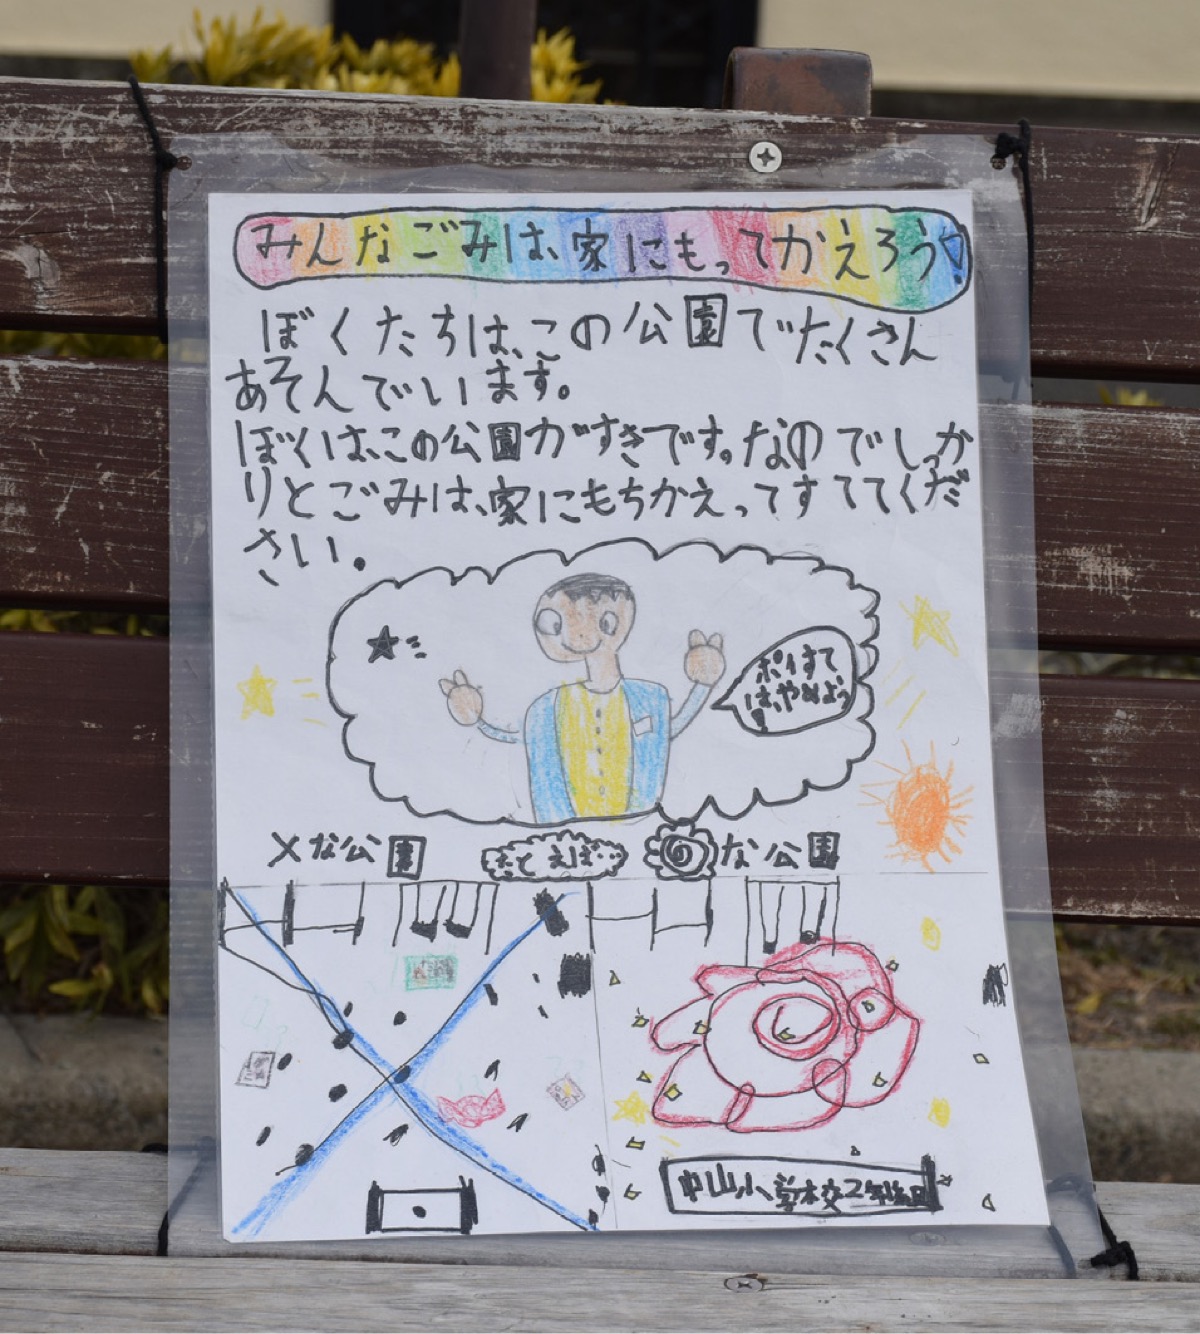 みんなごみは、家にもってかえろう!
ぼくたちは、この公園でたくさん
あそんでいます。
ぼくは、この公園がすきです。なのでしっか
りとごみは、家にもちかえってすててくだ
さい。
ポイすて
は、やめよう
!
×な公園
たとえば…
◎な公園
中山小学校2年